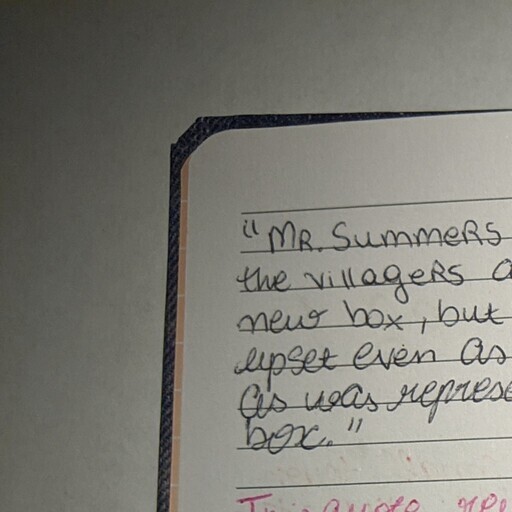 "MR. Summers
the villagers
new box, but
upset even as
as was represe
box."
This quote